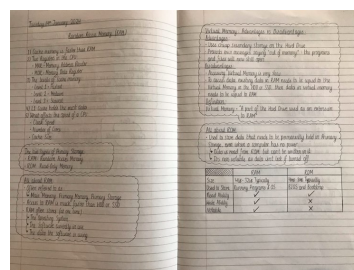 Tuesday 14th January 2020
Random Access Memory (RAM)
1) Cache memory is faster than RAM
2) Two Registers in the CPU
- MAR: Memory Address Register
- MDR: Memory Data Register
3) The levels of Cache memory
- Level 1:
- Level 2:
- Level 3:
4) L3 Cache holds the most data
5) What affects the speed of a CPU
- Clock Speed
- Number of Cores
- Cache Size
The Two types of Primary Storage
- RAM: Random Access Memory
- ROM: Read Only Memory
All about RAM
Often referred to as:
Main Memory, Primary Memory, Primary Storage
Access to RAM is much faster than HDD or SSD
RAM often stores (at one time)
The Operating System
The software currently in use
The data the software is using
Virtual Memory: Advantages vs Disadvantages:
Advantages:
- Uses cheap secondary storage on the Hard Drive
- Prevents your messages saying "out of memory" - the programs
and files will now still open
Disadvantages:
- Accessing Virtual Memory is very slow
- To access data, memory data in RAM needs to be copied to the
Virtual Memory in the HDD or SSD, then data in virtual memory
needs to be copied to RAM
Definition:
Virtual Memory: "A part of the Hard Drive used as an extension
to RAM"
All about ROM:
- Used to store data that needs to be permanently held in Primary
Storage, even when a computer has no power.
Data is read from ROM but can't be written to it
Non volatile so data isn't lost if turned off
RAM ROM
Size
Used to Store Running Programs & OS BIOS and Booting
Read Ability ✓ ✓
Write Ability ✓ ✗
Volatile ✓ ✗